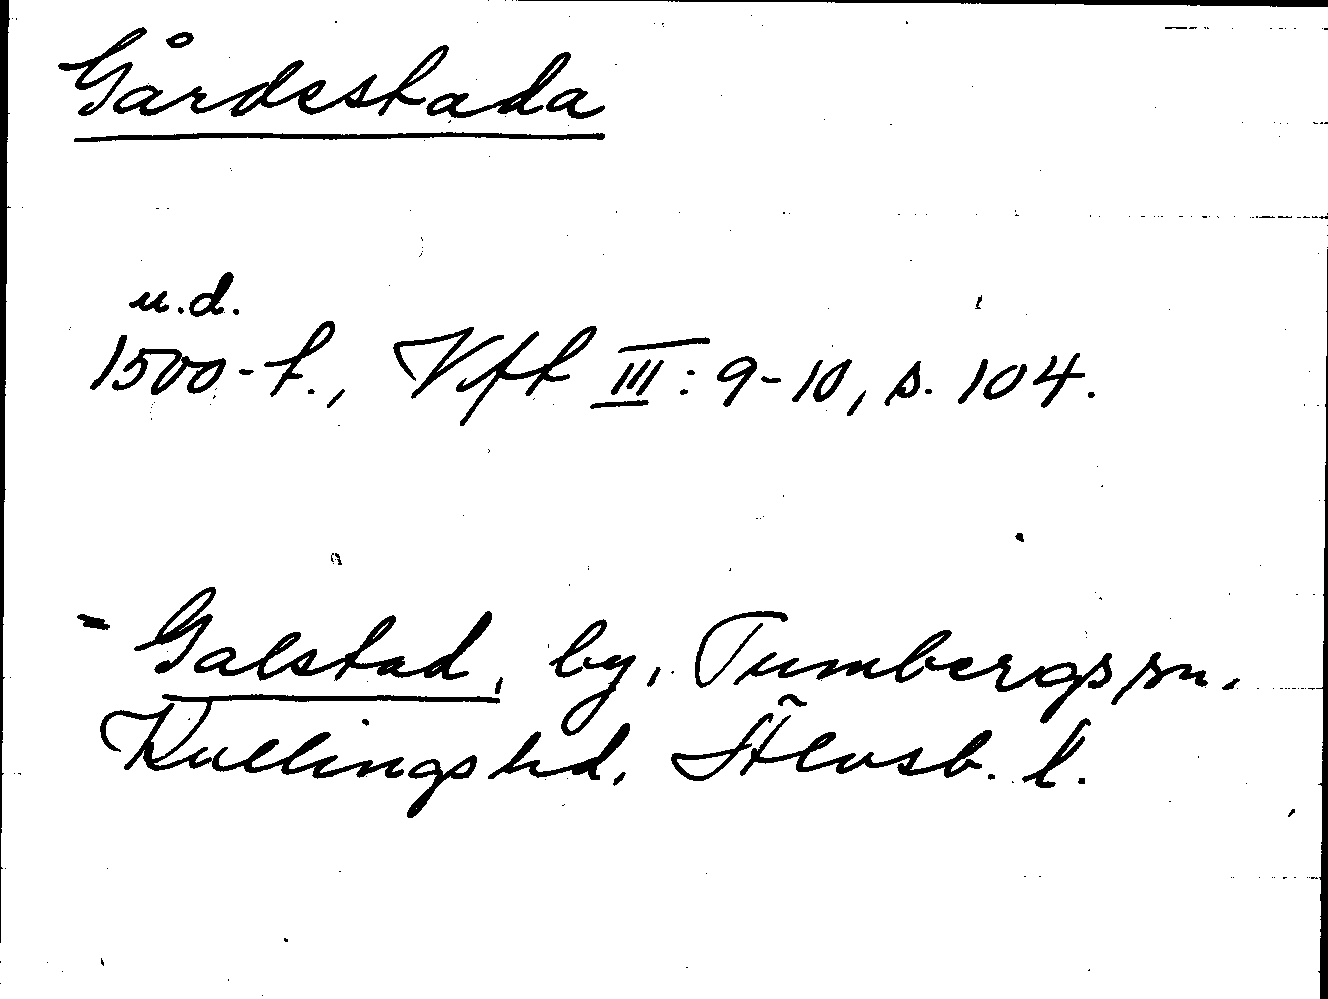 Gårdestada
u.d.
1500-t., Vft III: 9-10, s. 104.
= Galstad, by, Tumbergs sn.
Kullings hd. Älvsb. l.